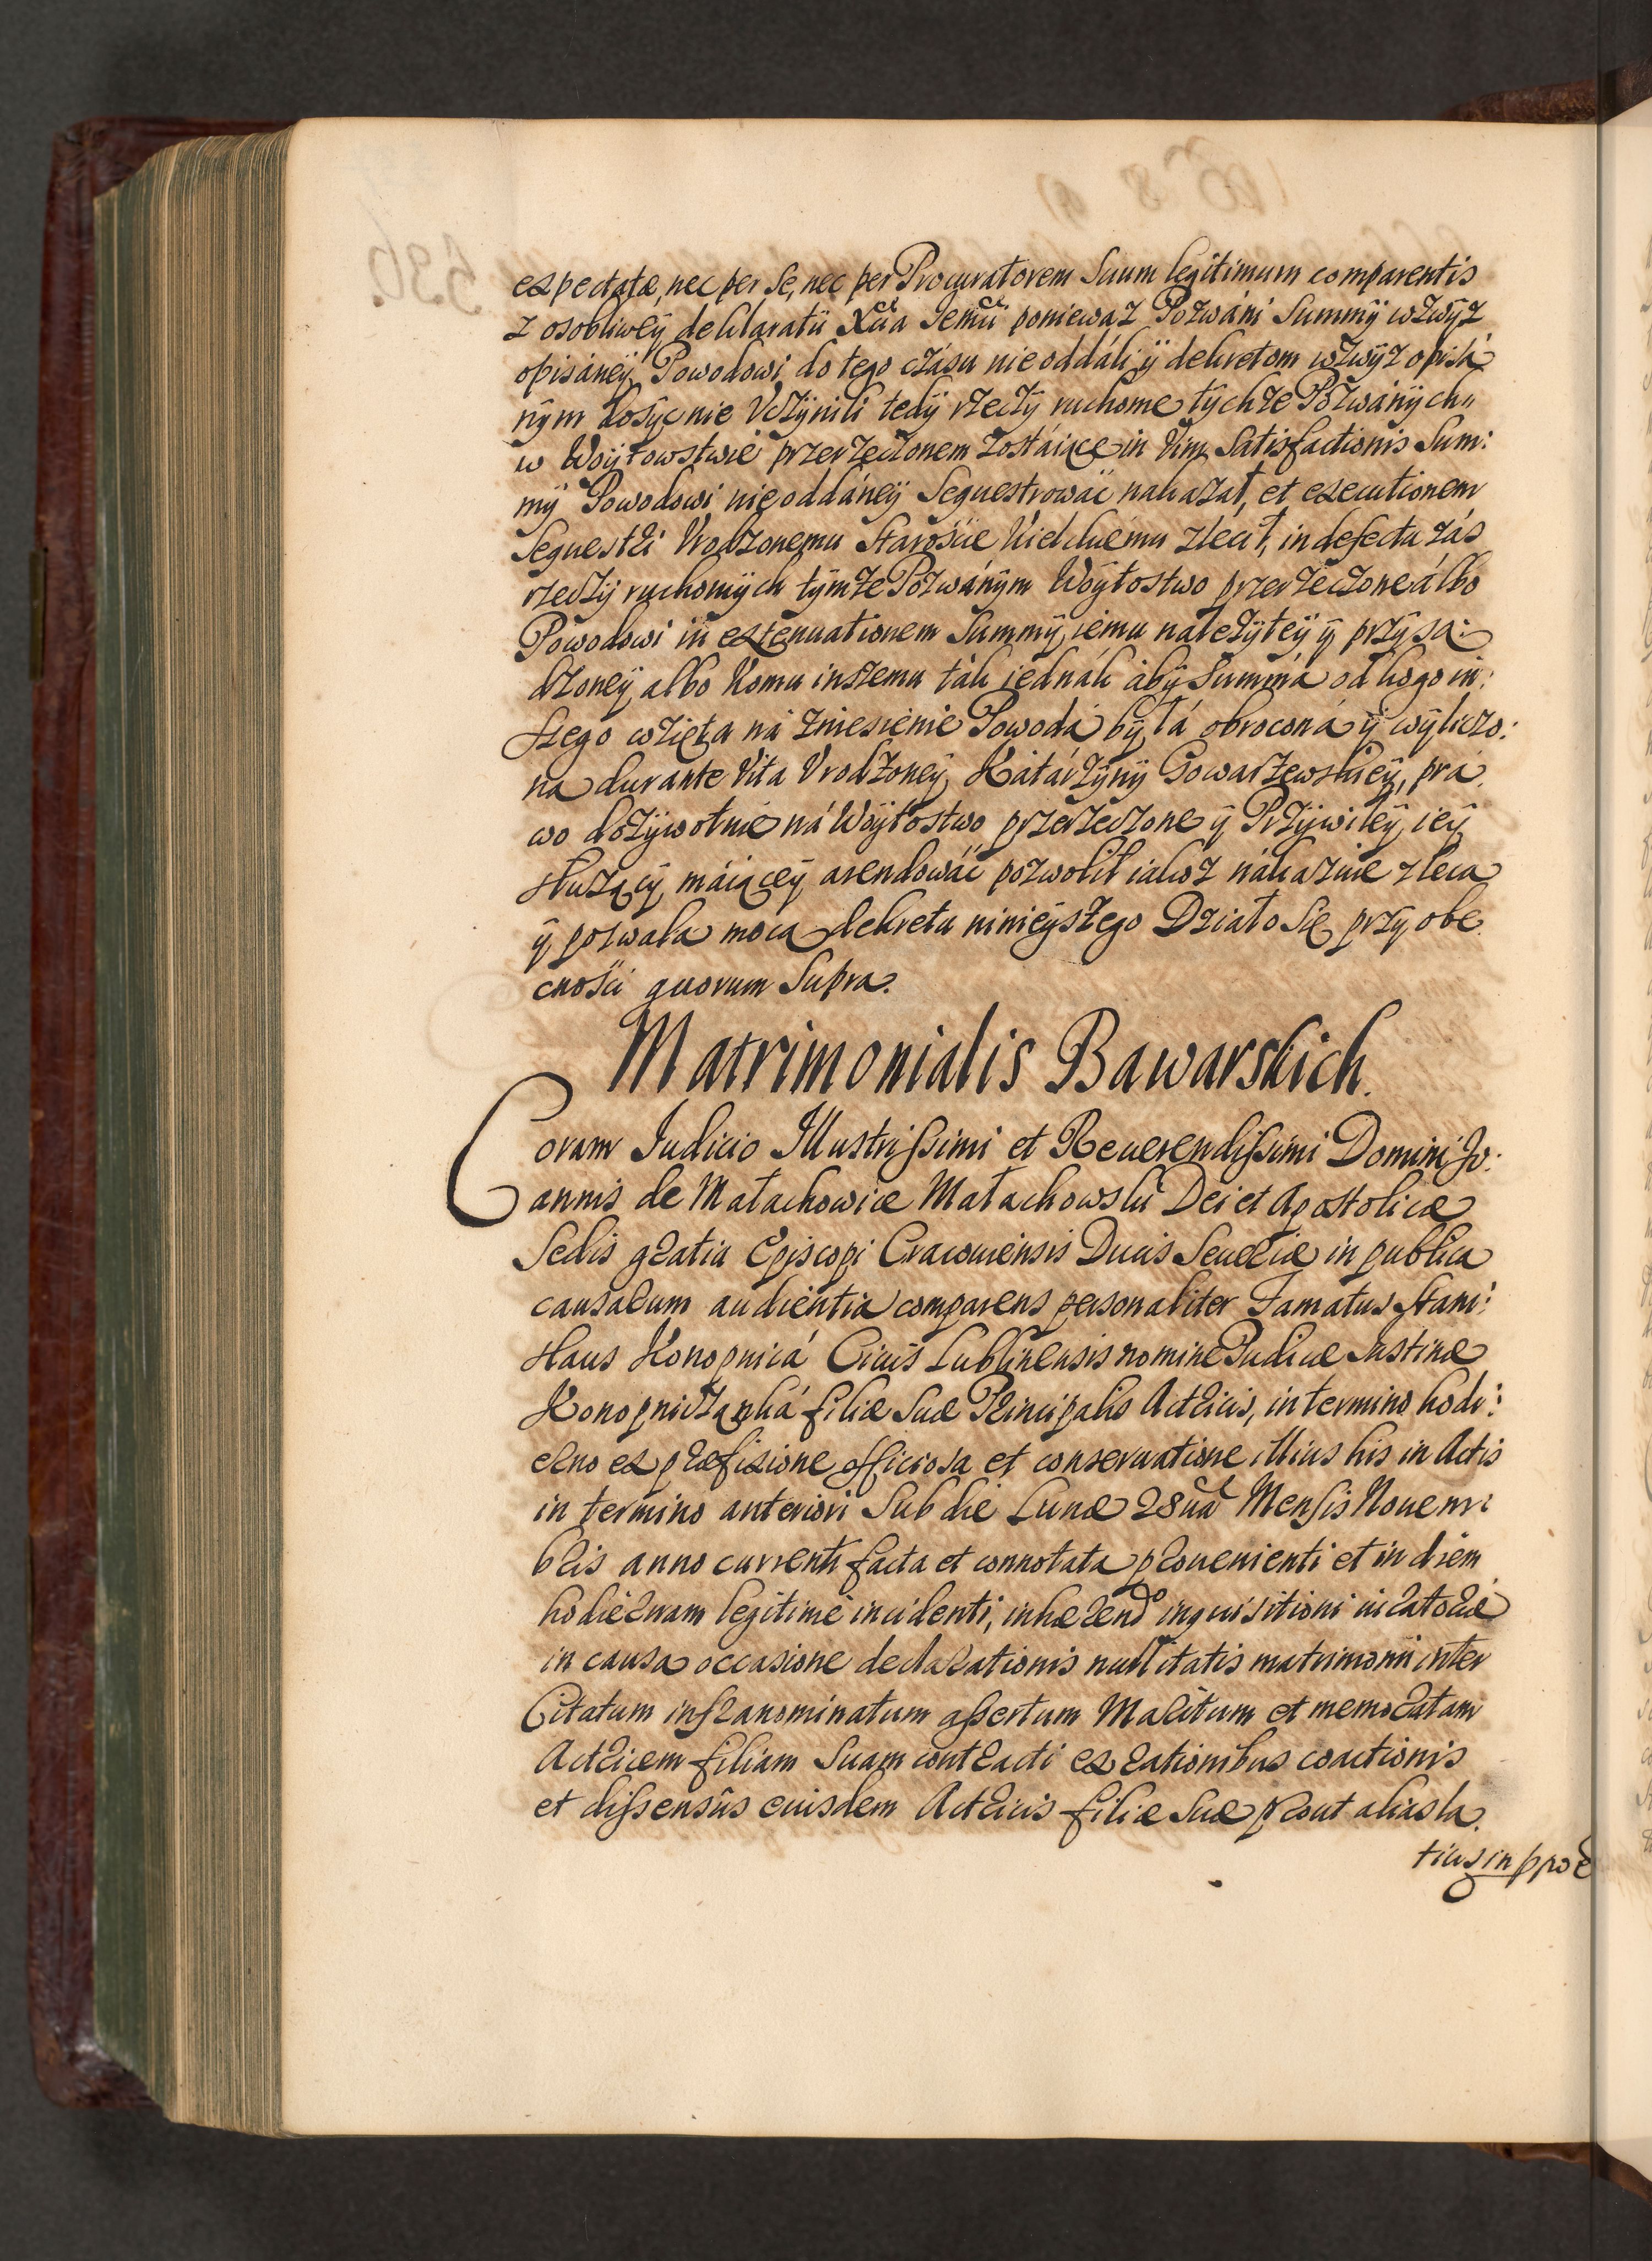 expectatæ, nec per se, nec per Procuratorem Suum legitimum comparentis
z osobliwey deklaratii Xcia Jemci ponieważ Pozwáni Summy wzwyż
opisáney Powodowi do tego czásu nie oddáli y dekretom wzwyż opisá
nym dosyc nie Vczynili tedy rzeczy ruchome tychże Pozwánych
w Woytowstwie przerzeczonem zostáiące in Vim Satisfactionis Sum:
my Powodowi nie oddáney Sequestrowáć nakazał, et executionem
Sequestri Vrodzonemu Starośćie Kieleckiemu zlecił, in defectu zás
rzeczy ruchomych tymże Pozwánym Woytostwo przerzeczone álbo
Powodowi in extenuationem Summy iemu należytey y przysą:
dzoney albo komu inszemu ták iednák áby Summá od kogo in:
szego wzięta ná zniesienie Powodá byłá obroconá y wyliczo:
na durante Vita Vrodzoney Kátárzyny Gowarzewskiey, prá
wo dożywotnie ná Woytostwo przerzeczone y Przywiley iey
służący máiącey arendowáć pozwolił iakoż nákazuie zleca
y pozwala mocą dekretu ninieyszego Działo się przy obe
cnośći quorum Supra.
Matrimonialis Bawarskich.
Coram Iudicio Illustrissimi et Reuerendissimi Domini Jo:
annis de Małachowice Małachowski Dei et Apostolicæ
Sedis gratia Episcopi Cracouiensis Ducis Seueriæ in publica
causarum audientia comparens personaliter Famatus Stani:
slaus Konopnicá Ciuis Lublinensis nomine Pudicæ Iustinæ
Konopniczanká filiæ Suæ Principalis Actricis, in termino hodi:
erno ex præfixione officiosa et conseruatione illius his in Actis
in termino anteriori Sub die Lunæ 28ua Mensis Nouem:
bris anno currenti facta et connotata prouenienti et in diem
hodiernam legitime incidenti, inhærendo inquisitioni iuratoriæ
in causa occasione declarationis nullitatis matrimonii inter
Citatum infranominatum assertum Maritum et memoratam
Actricem filiam Suam contracti ex rationibus coactionis
et dissensûs eiusdem Actricis filiæ Suæ prout alias la
tius in proc